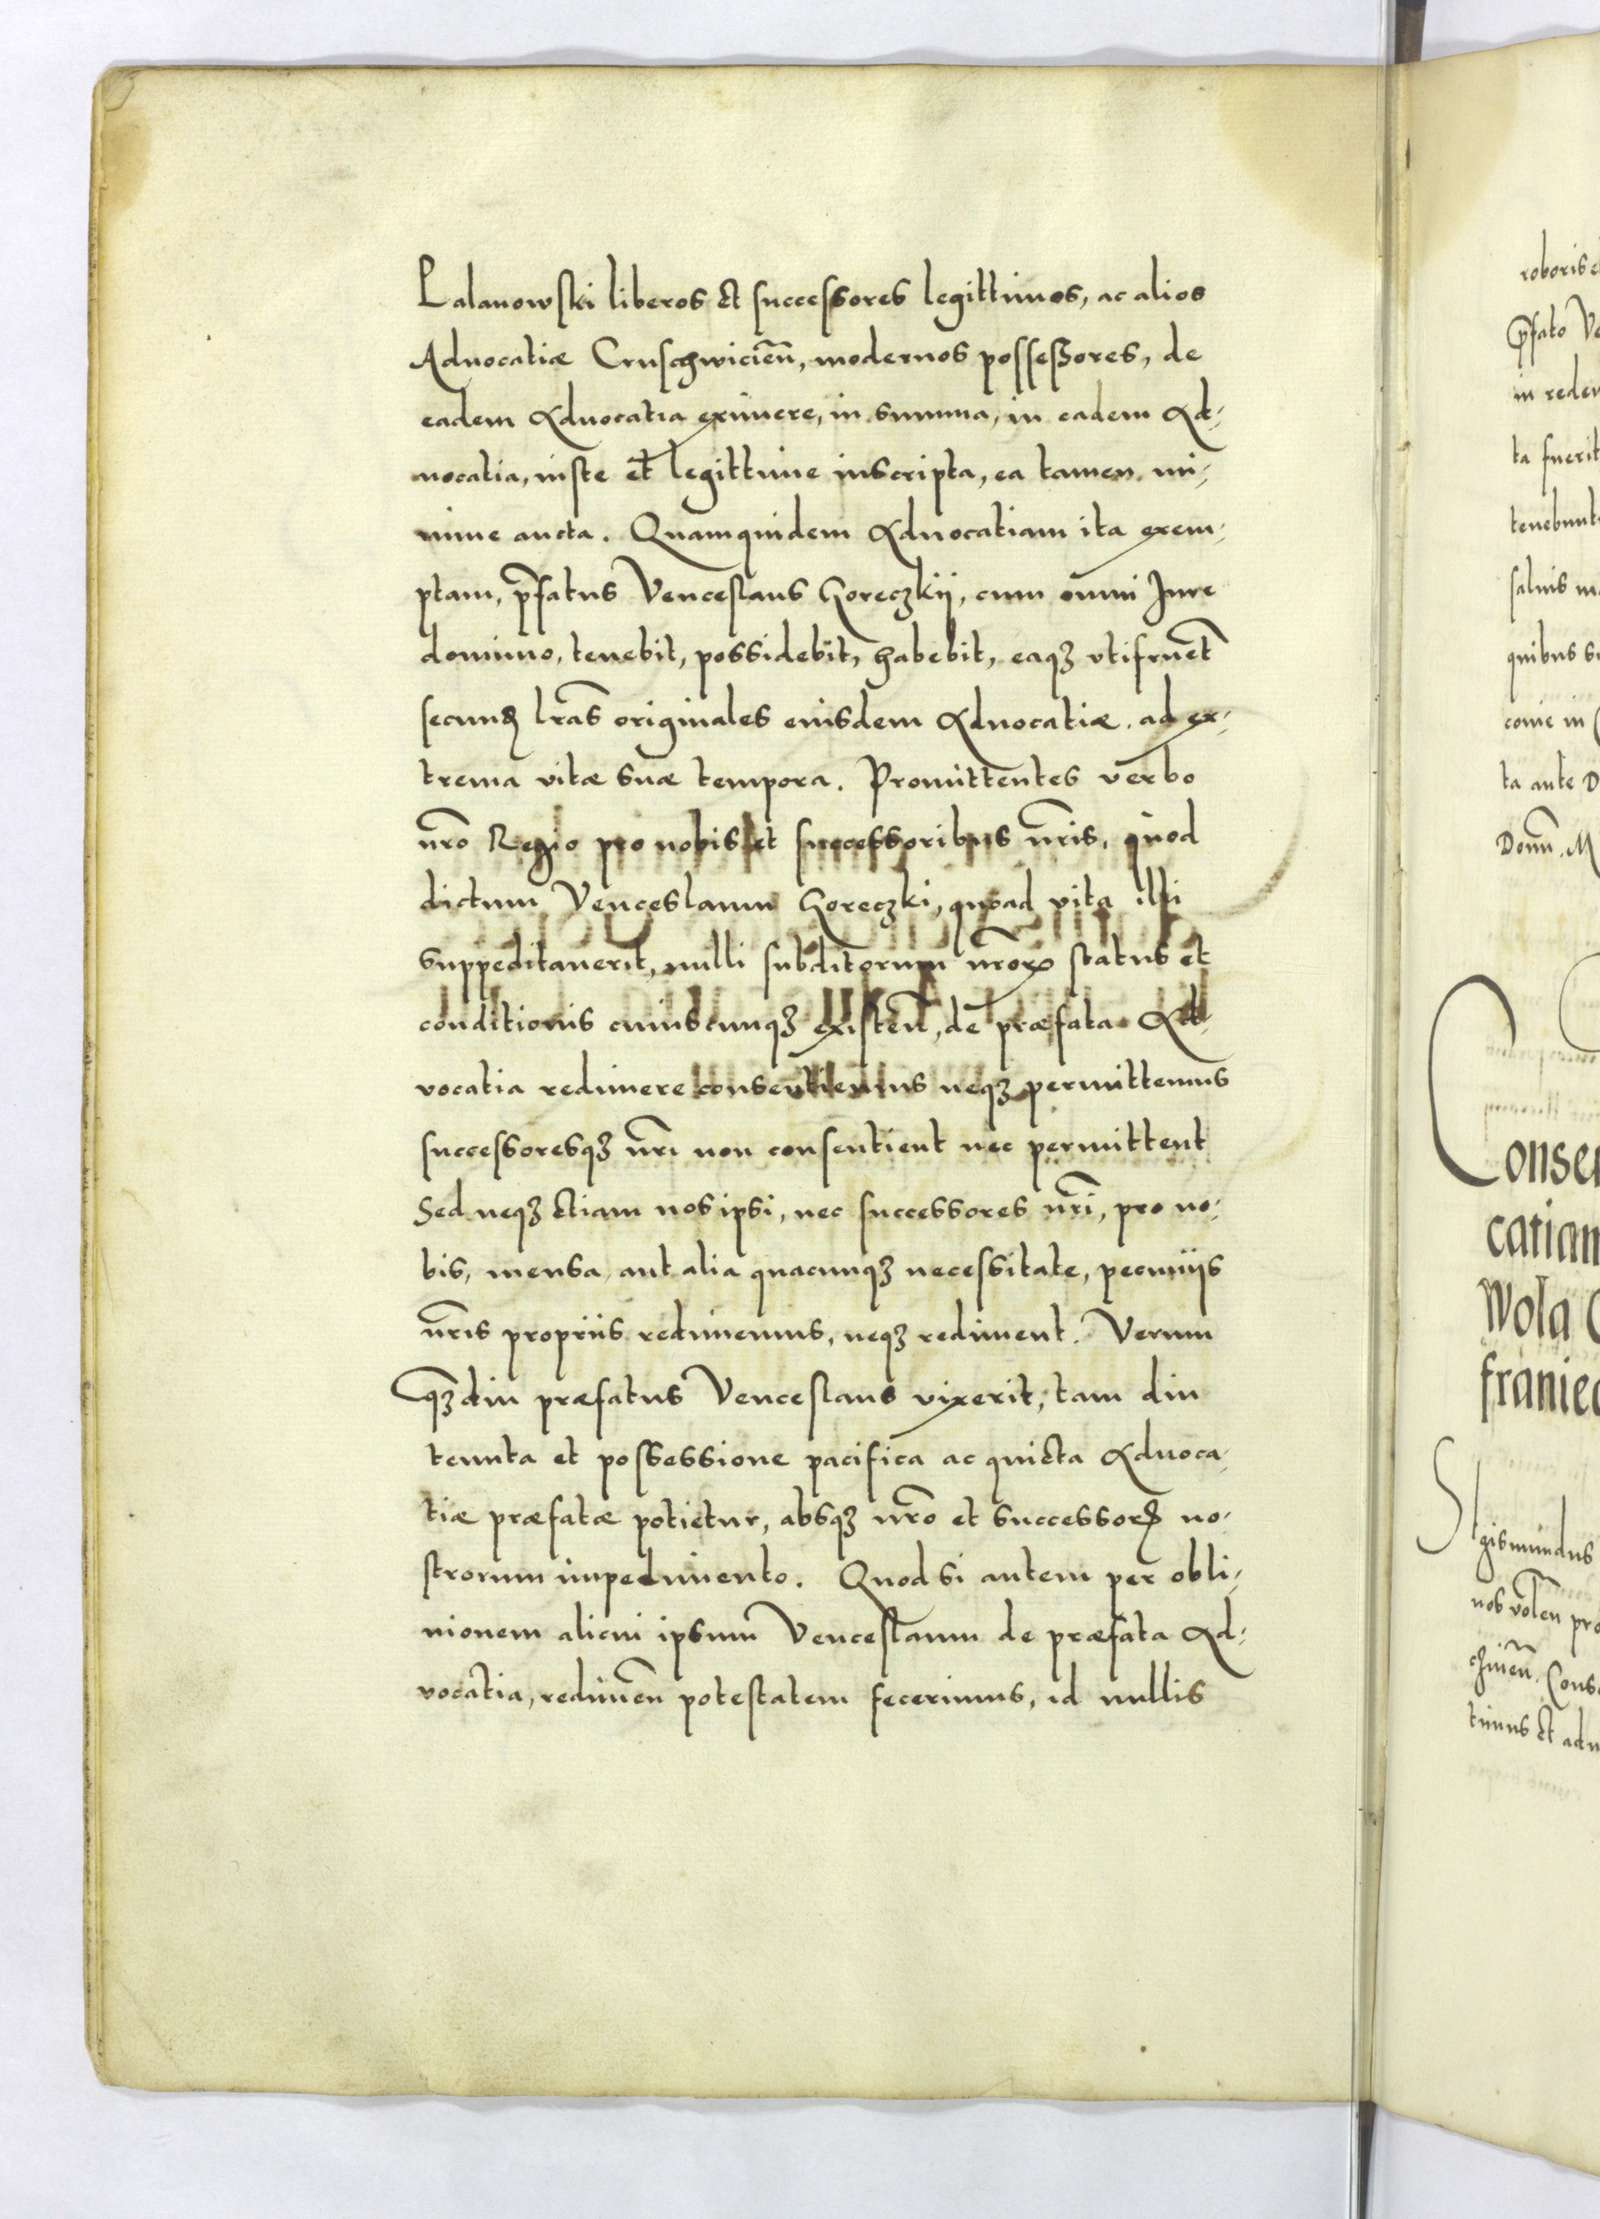 Lalanowski liberos et successores legittimos, ac alios
Aduocatiæ Cruschwicień, modernos possessores, de
eadem Aduocatia eximere, in summa, in eadem Ad-
uocatia, iuste et legittime inscripta, ea tamen mi-
nime aucta. Quamquidem Aduocatiam ita exem-
ptam, p̄fatus Venceslaus Goreczkij, cum omni Jure
dominio, tenebit, possidebit, habebit, eaqꝫ vtifruet̄
secund̄ lr̄as originales eiusdem Aduocatiæ ad ex-
trema vitæ suæ tempora. Promittentes verbo
nr̄o Regio pro nobis et successoribus nr̄is, quod
dictum Venceslaum Goreczki, quoad vita illi
suppeditauerit, nulli subditorum nr̄oꝝ status et
conditionis cuiuscunqꝫ existeń, de præfata Ad-
vocatia redimere consentiemus neqꝫ permittemus
successoresqꝫ nr̄i non consentient nec permittent
Sed neqꝫ etiam nos ipsi, nec successores nr̄i, pro no-
bis, mensa, aut alia quacunqꝫ necessitate, pecunijs
nr̄is proprijs redimemus, neqꝫ rediment. Verum
qꝫdiu præfatus Venceslaus vixerit, tam diu
tenuta et possessione pacifica ac quieta Aduoca-
tiæ præfatæ potietur, absqꝫ nr̄o et successorꝝ no-
strorum impedimento. Quod si autem per obli-
uionem alicui ipsum Venceslaum de præfata Ad-
vocatia, redimeń potestatem fecerimus, id nullis
roboris
p̄fato
in
ta fuerit
salvis
quibus
ta ante
Donū. M
Conse
catiam
Wola
franie
Sigismundus
nos
Cons
timus et